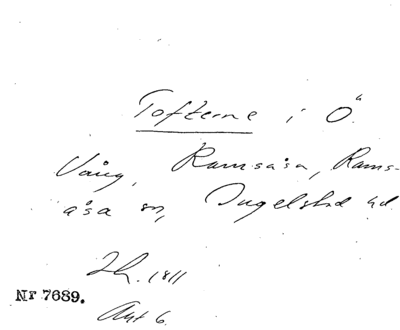 Tofterne i Ö.
Vång, Ramsåsa, Rams-
åsa sn, Ingelstad hd.
Sk. 1811
Akt 6.
Nr 7689.